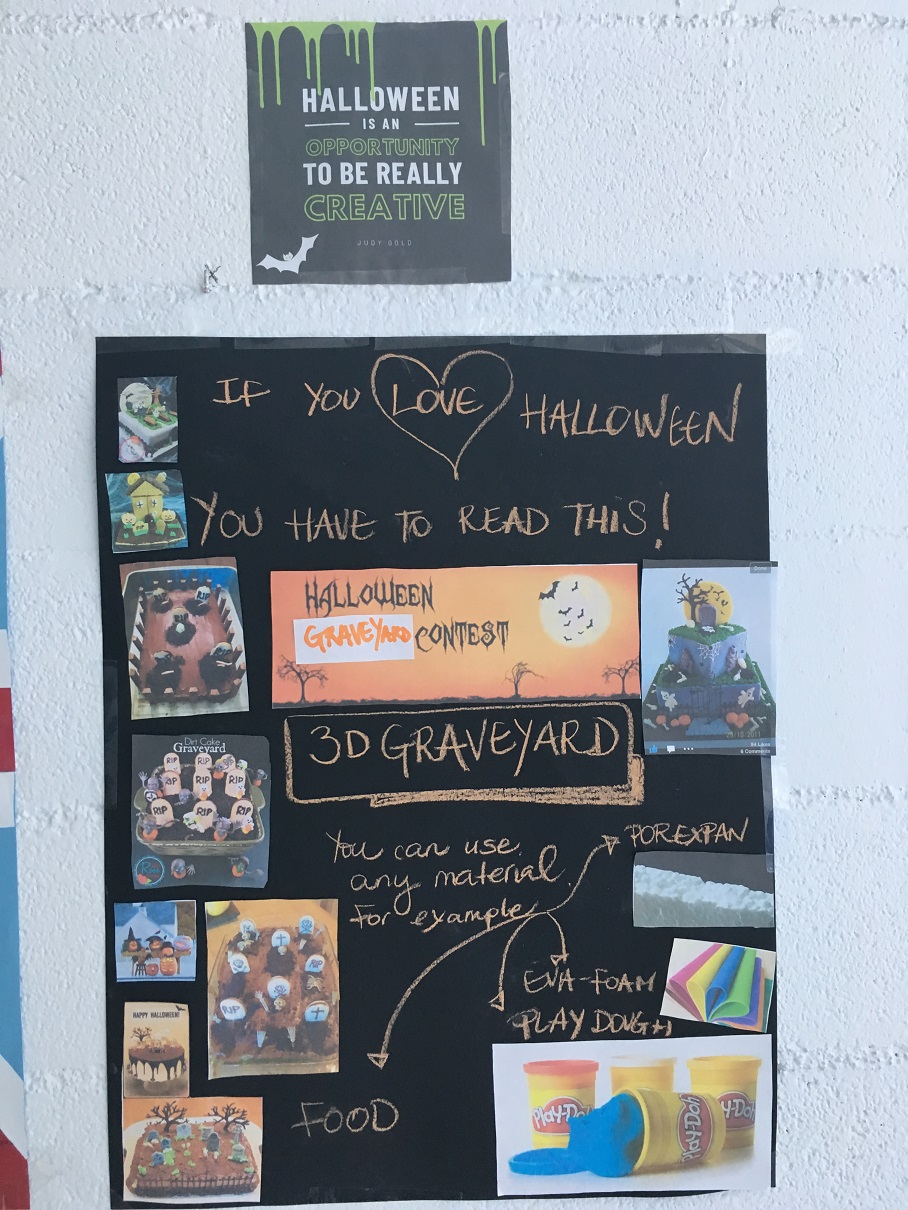 HALLOWEEN
IS AN
OPPORTUNITY
TO BE REALLY
CREATIVE
JUDY GOLD
IF YOU LOVE HALLOWEEN
YOU HAVE TO READ THIS!
HALLOWEEN
GRAVEYARD CONTEST
3D GRAVEYARD
You can use
any material
for example
POREXPAN
EVA-FOAM
PLAY DOUGH
FOOD
RIP
Dirt Cake
Graveyard
RIP
RIP
RIP
RIP
RIP
RIP
RIP
RIP
RIP
RIP
HAPPY HALLOWEEN!
25/10/2011
94 Likes
6 Comments
Play-Doh
Play-Doh
Play-Doh